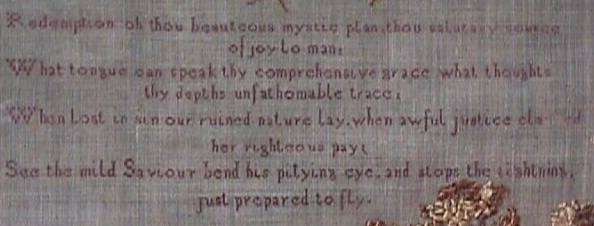 Redemption oh thou beauteous mystic plan, thou salutary source
of joy to man;
What tongue can speak thy comprehensive grace what thoughts
thy depths unfathomable trace;
When Lost in sin our ruined nature lay, when awful justice
her righteous pay;
See the mild Saviour bend his pitying eye, and stops the lightning,
just prepared to fly.